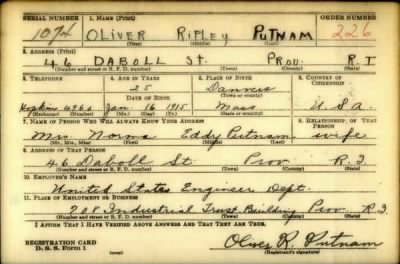 SERIAL NUMBER 1. NAME (Print) ORDER NUMBER
1074 OLIVER RIPLEY PUTNAM 226
(First) (Middle) (Last)
2. ADDRESS (Print)
46 DABOLL St. PROV. R.I
(Number and street or R. F. D. number) (Town) (County) (State)
3. TELEPHONE 4. AGE IN YEARS 5. PLACE OF BIRTH 6. COUNTRY OF CITIZENSHIP
25 Danvers
DATE OF BIRTH (Town or county)
Hopkins Jan. 16 1915 Mass U.S.A.
(Exchange) (Number) (Mo.) (Day) (Yr.) (State or country)
7. NAME OF PERSON WHO WILL ALWAYS KNOW YOUR ADDRESS 8. RELATIONSHIP OF THAT PERSON
Mrs. Norma Eddy Putnam wife
(Mr., Mrs., Miss) (First) (Middle) (Last)
9. ADDRESS OF THAT PERSON
46 Daboll St Prov R.I.
(Number and street or R. F. D. number) (Town) (County) (State)
10. EMPLOYER'S NAME
United States Engineer Dept.
11. PLACE OF EMPLOYMENT OR BUSINESS
208 Industrial Trust Building Prov R.I.
(Number and street or R. F. D. number) (Town) (County) (State)
I AFFIRM THAT I HAVE VERIFIED ABOVE ANSWERS AND THAT THEY ARE TRUE.
REGISTRATION CARD
D. S. S. Form 1 Oliver R. Putnam
(Registrant's signature)